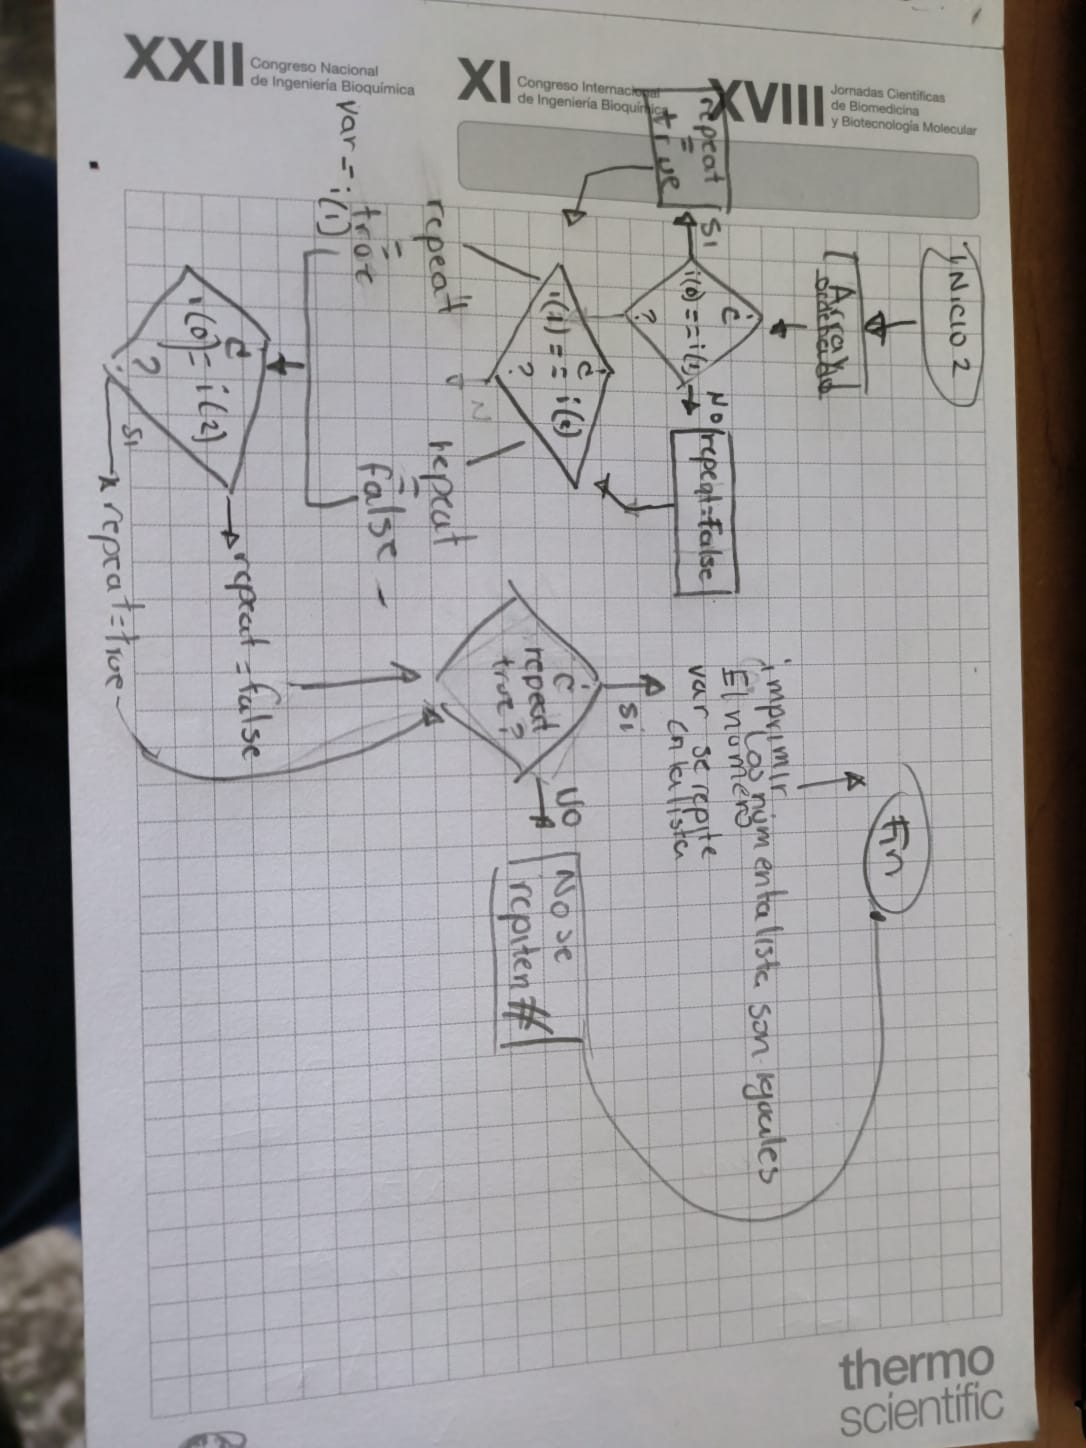 XXII Congreso Nacional
de Ingeniería Bioquímica
XI Congreso Internacional
de Ingeniería Bioquímica
XVIII Jornadas Científicas
de Biomedicina
y Biotecnología Molecular
INICIO 2
Array
ordenado
¿
i(0)==i(1)
?
Si
repeat
=
true
No
repeat=False
¿
i(1)==i(2)
?
N
repeat
=
true
var=i(1)
repeat
=
false
¿
i(0)=i(2)
?
Si
repeat=true
repeat=false
¿
repeat
true?
Si
NO
No se
repiten #
imprimir
los núm en la lista son iguales
El número
var se repite
en la lista
Fin
thermo
scientific